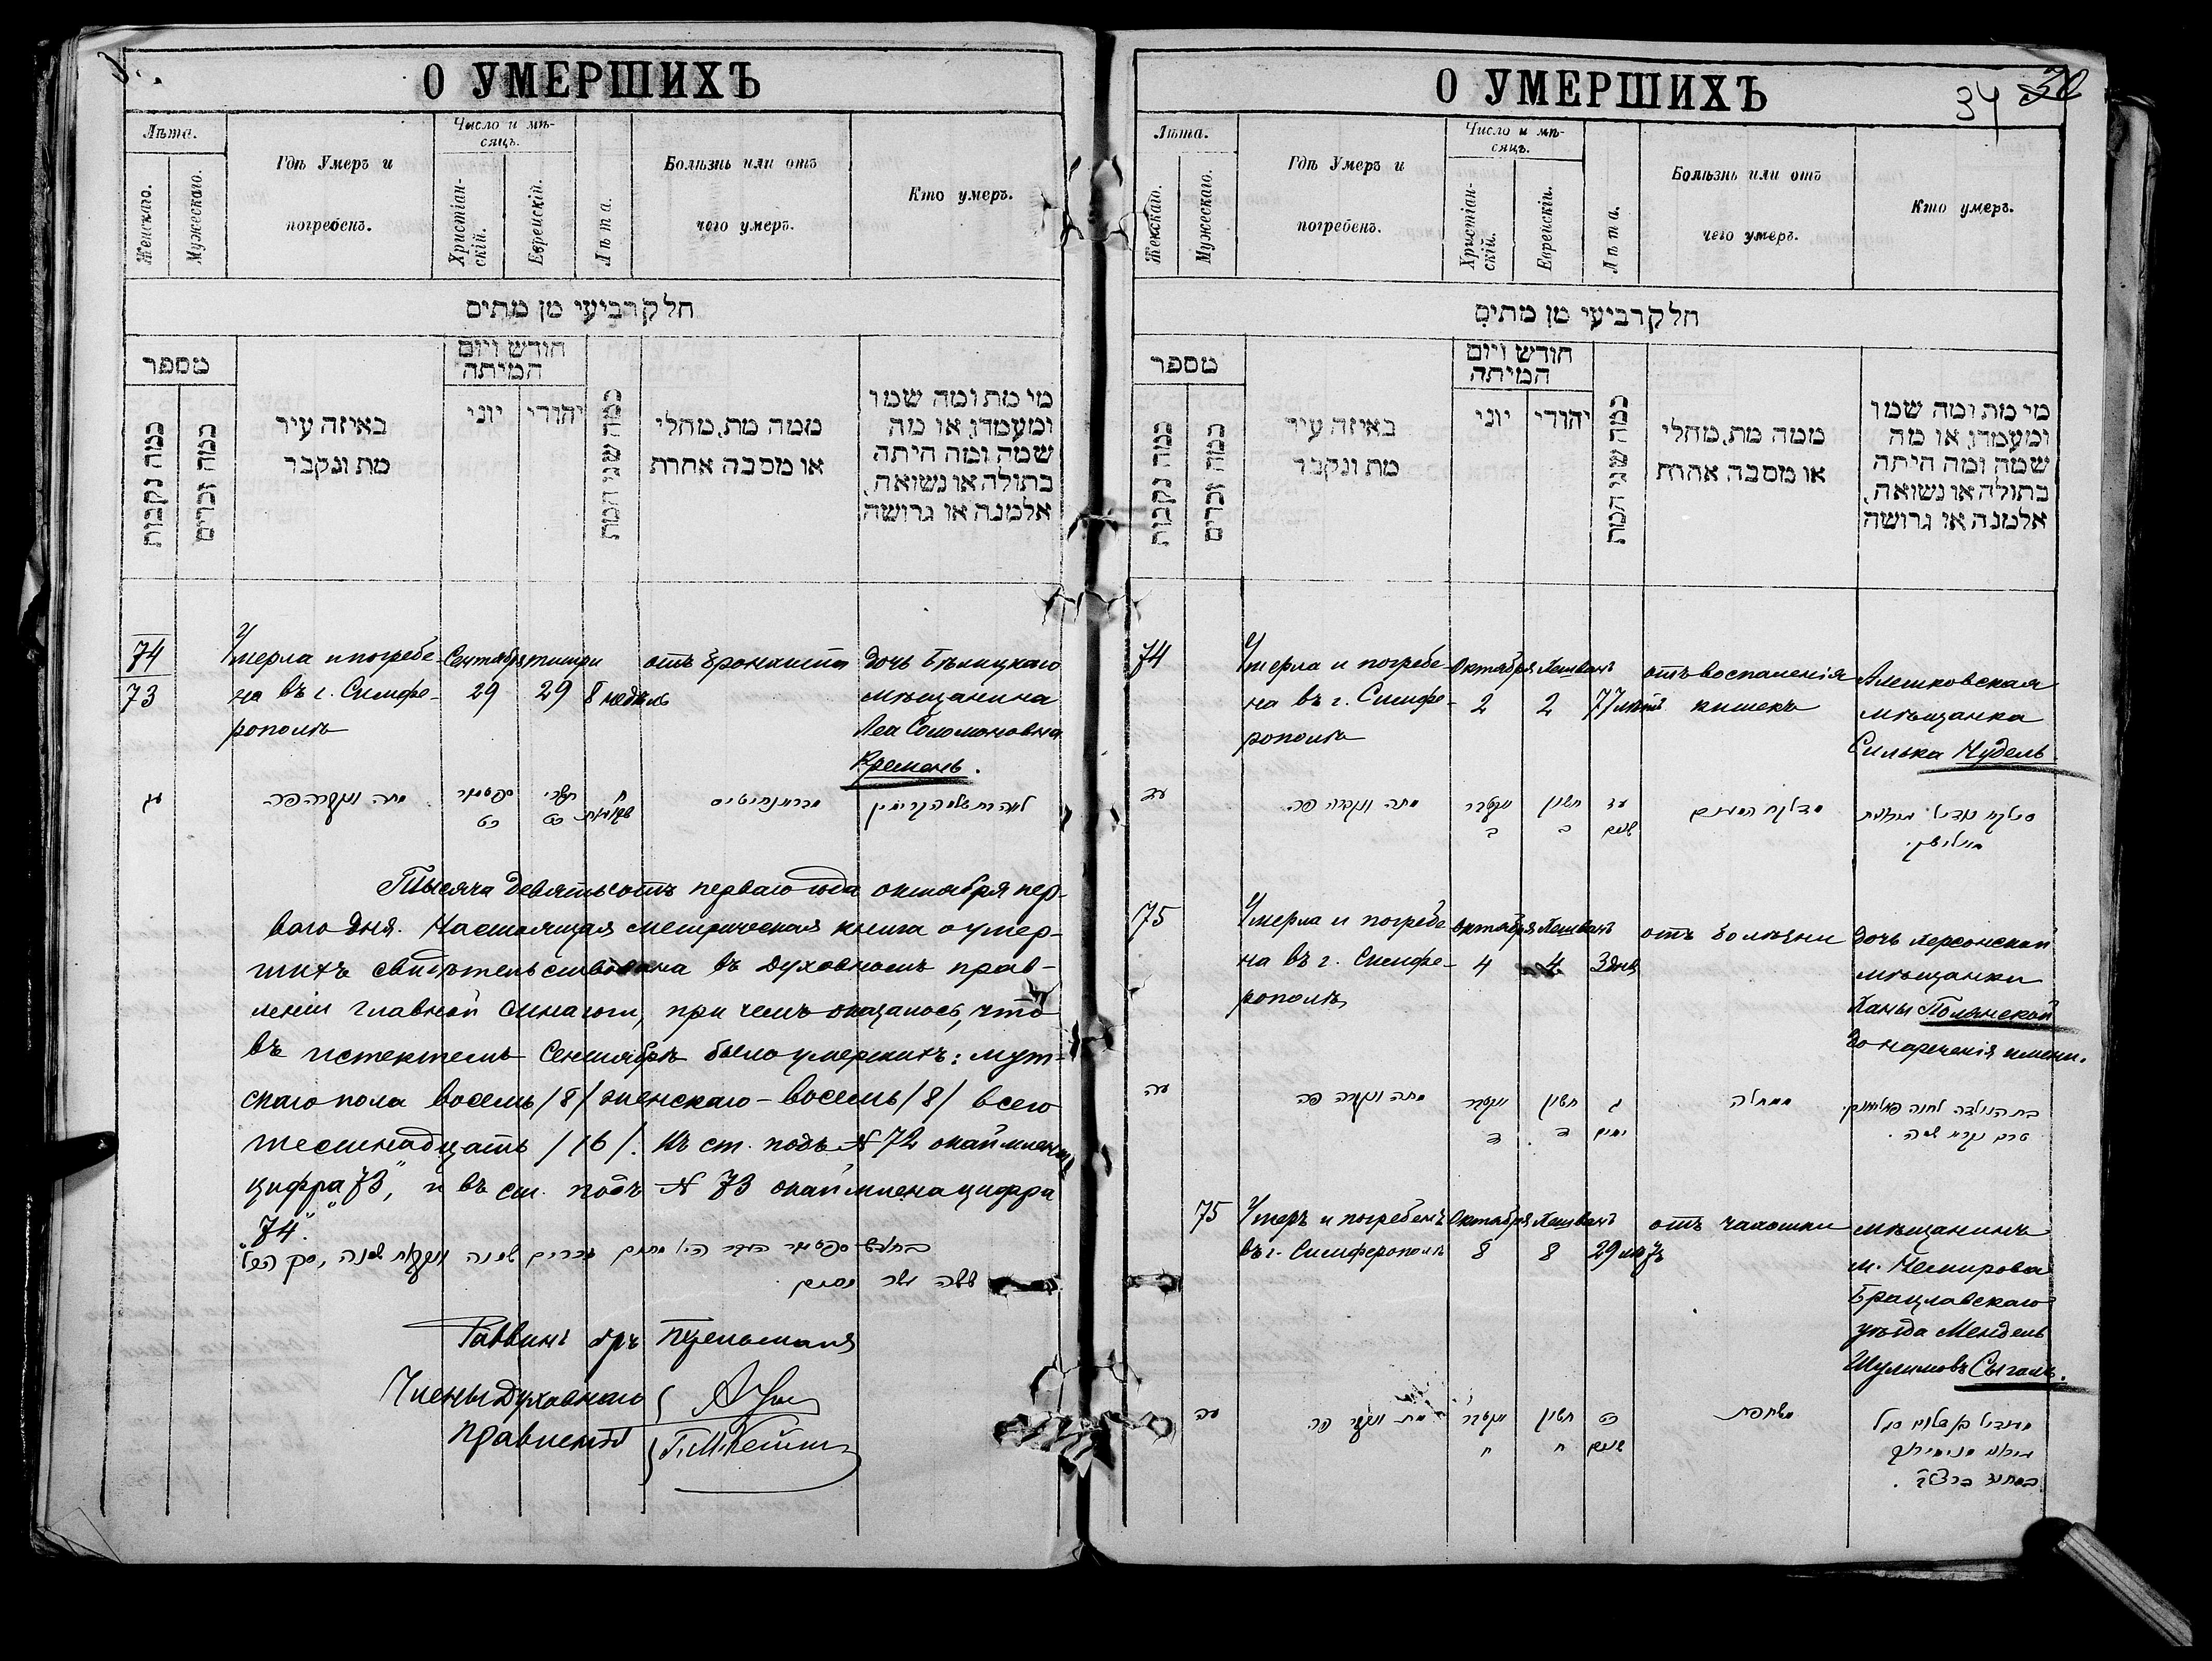 О УМЕРШИХЪ
Лѣта.
Женскаго.
Мужескаго.
Гдѣ Умеръ и
погребенъ.
Число и мѣ-
сяцъ.
Христіан-
скій.
Еврейскій.
Лѣта.
Болѣзнь или отъ
чего умеръ.
Кто умеръ.
חלק רביעי מן מתים
מספר
כמה נקבות
כמה זכרים
באיזה עיר
מת ונקבר
חודש ויום
המיתה
יוני
יהודי
כמה שני המת
ממה מת, מחלי
או מסבה אחרת
מי מת ומה שמו
ומעמדו, או מה
שמה ומה היתה
בתולה או נשואה,
אלמנה או גרושה
74
73
Умерла и погребе-
на въ г. Симфе-
рополѣ
Сентября
29
тишри
29
8 недѣль
отъ бронхита
Дочь Бѣлицкаго
мѣщанина
Леа Соломоновна
Кремень.
עג
מתה ונקברה פה
ספטמבר
כט
תשרי
כט
ח
שבועות
Тысяча девятьсотъ перваго года октября пер-
ваго дня. Настоящая метрическая книга о умер-
шихъ свидѣтельствована въ духовномъ прав-
леніи главной синагоги, при чемъ оказалось, что
въ истекшемъ Сентябрѣ было умершихъ: муж-
скаго пола восемь /8/ женскаго - восемь /8/ всего
шестнадцать /16/. Въ ст. подъ № 72 окаймлена
цифра "73", и въ ст. подъ № 73 окаймлена цифра
"74".
Раввинъ
Члены Духовнаго
Правленія
О УМЕРШИХЪ
34
30
Лѣта.
Женскаго.
Мужескаго.
Гдѣ Умеръ и
погребенъ.
Число и мѣ-
сяцъ.
Христіан-
скій.
Еврейскій.
Лѣта.
Болѣзнь или отъ
чего умеръ.
Кто умеръ.
חלק רביעי מן מתים
מספר
כמה נקבות
כמה זכרים
באיזה עיר
מת ונקבר
חודש ויום
המיתה
יוני
יהודי
כמה שני המת
ממה מת, מחלי
או מסבה אחרת
מי מת ומה שמו
ומעמדו, או מה
שמה ומה היתה
בתולה או נשואה,
אלמנה או גרושה
74
Умерла и погребе-
на въ г. Симфе-
рополѣ
Октября
2
Хешванъ
2
77 лѣтъ
отъ воспаленія
кишекъ
Алешковская
мѣщанка
Силька Нудель.
עד
מתה ונקברה פה
חשון
ב
שנים
75
Умерла и погребе
на въ г. Симфе-
рополѣ
Октября
4
Хешванъ
4
3 дня
отъ болѣзни
Дочь Херсонской
мѣщанки
Ханы Полянской
до нареченія имени.
עה
מתה ונקברה פה
חשון
ד
ג
ימים
ממחלה
75
Умеръ и погребенъ
въ г. Симферополѣ
Октября
8
Хешванъ
8
29 лѣтъ
отъ чахотки
мѣщанинъ
м. Немирова
Брацлавскаго
уѣзда Мендель
Шулимовъ Сыгаль.
עה
מת ונקבר פה
חשון
ח
כט
שנים
משחפת